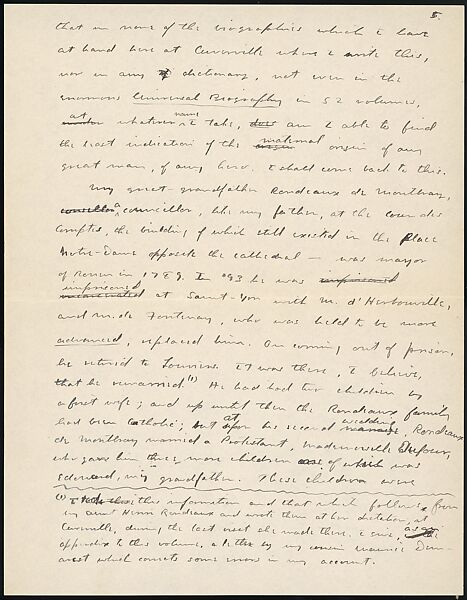 5.
that in none of the biographies which I have
at hand here at Cuverville where I write this,
nor in any dictionary, not even in the
enormous Universal Biography in 52 volumes,
at whatever name I take, am I able to find
the least indication of the maternal origin of any
great man, of any hero. I shall come back to this.
My great-grandfather Rondeaux de Montbray,
councillor, like my father, at the Cour des
Comptes, the building of which still existed in the Place
Notre-Dame opposite the cathedral — was mayor
of Rouen in 1789. In '93 he was imprisoned
imprisoned at Saint-Yon with M. d'Herbouville,
and M. de Fontenay, who was held to be more
advanced, replaced him. On coming out of prison,
he retired to Louviers. It was there, I believe,
that he remarried (1) He had had two children by
a first wife; and up until then the Rondeaux family
had been Catholic; but at his second wedding, Rondeaux
de Montbray married a Protestant, Mademoiselle Dufour,
who gave him three more children of which was
Edouard, my grandfather. These children were
(1) this information and that which follows, from
my aunt Henri Rondeaux and wrote them at her dictation, at
Cuverville, during the last visit she made there. I give, as an
appendix to this volume, a letter by my cousin Maurice Dem-
arest which corrects some errors in my account.